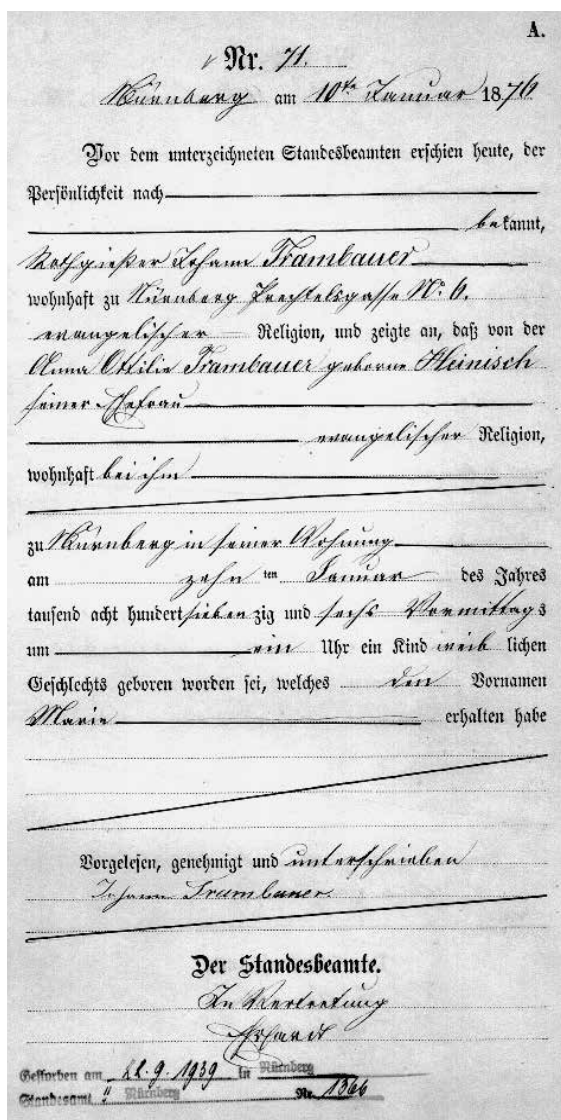 A.
Nr. 71.
Nürnberg am 10ten Januar 1876
Vor dem unterzeichneten Standesbeamten erschien heute, der
Persönlichkeit nach
bekannt,
Rothgießer Johann Trambauer
wohnhaft zu Nürnberg Prechtelsgasse No. 6.
evangelischer Religion, und zeigte an, daß von der
Anna Ottilie Trambauer geborne Heinisch
seiner Ehefrau
evangelischer Religion,
wohnhaft bei ihm
zu Nürnberg in seiner Wohnung
am zehn ten Januar des Jahres
tausend acht hundert sieben zig und sechs Vormittags
um ein Uhr ein Kind weib lichen
Geschlechts geboren worden sei, welches den Vornamen
Marie erhalten habe
Vorgelesen, genehmigt und unterschrieben
Johann Trambauer.
Der Standesbeamte.
In Vertretung
Ehrhardt
Gestorben am 22.9.1939 in Nürnberg
Standesamt II Nürnberg Nr. 1366